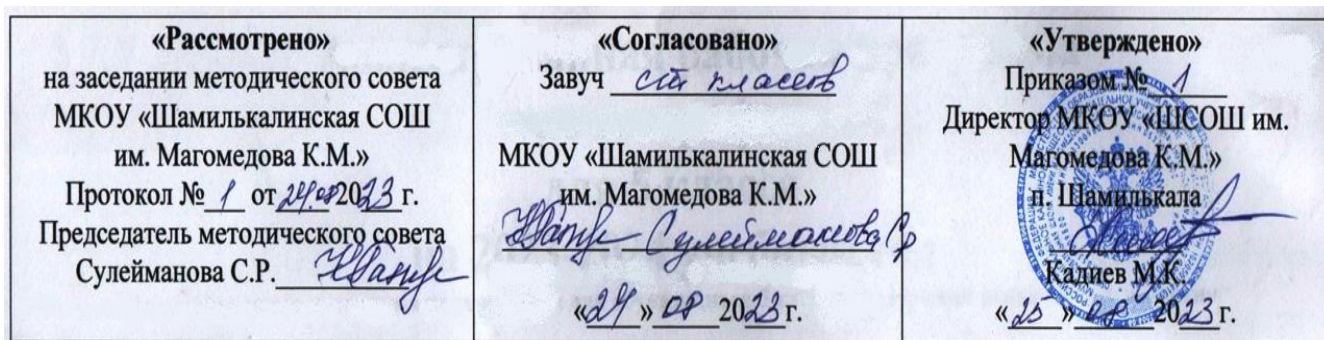 «Рассмотрено»
на заседании методического совета
МКОУ «Шамилькалинская СОШ
им. Магомедова К.М.»
Протокол № 1 от 24.08 2023 г.
Председатель методического совета
Сулейманова С.Р.
«Согласовано»
Завуч ст классов
МКОУ «Шамилькалинская СОШ
им. Магомедова К.М.»
Сулейманова Ср
«24» 08 2023 г.
«Утверждено»
Приказом № 1
Директор МКОУ «ШСОШ им.
Магомедова К.М.»
п. Шамилькала
Кадиев М.К
«25» 08 2023 г.